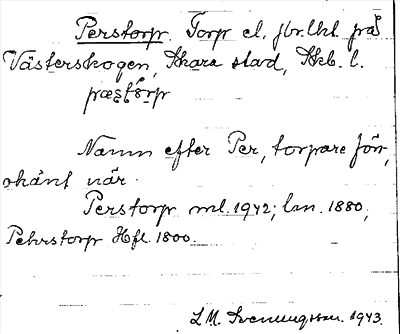 Perstorp. Torp el. jbr.lht. på
Västerskogen, Skara stad, Skb. l.
Namn efter Per, torpare förr,
okänt när.
Perstorp ml. 1942; lan. 1880,
Pehrstorp Hfl. 1800.
L.M. Svenungsson. 1943.